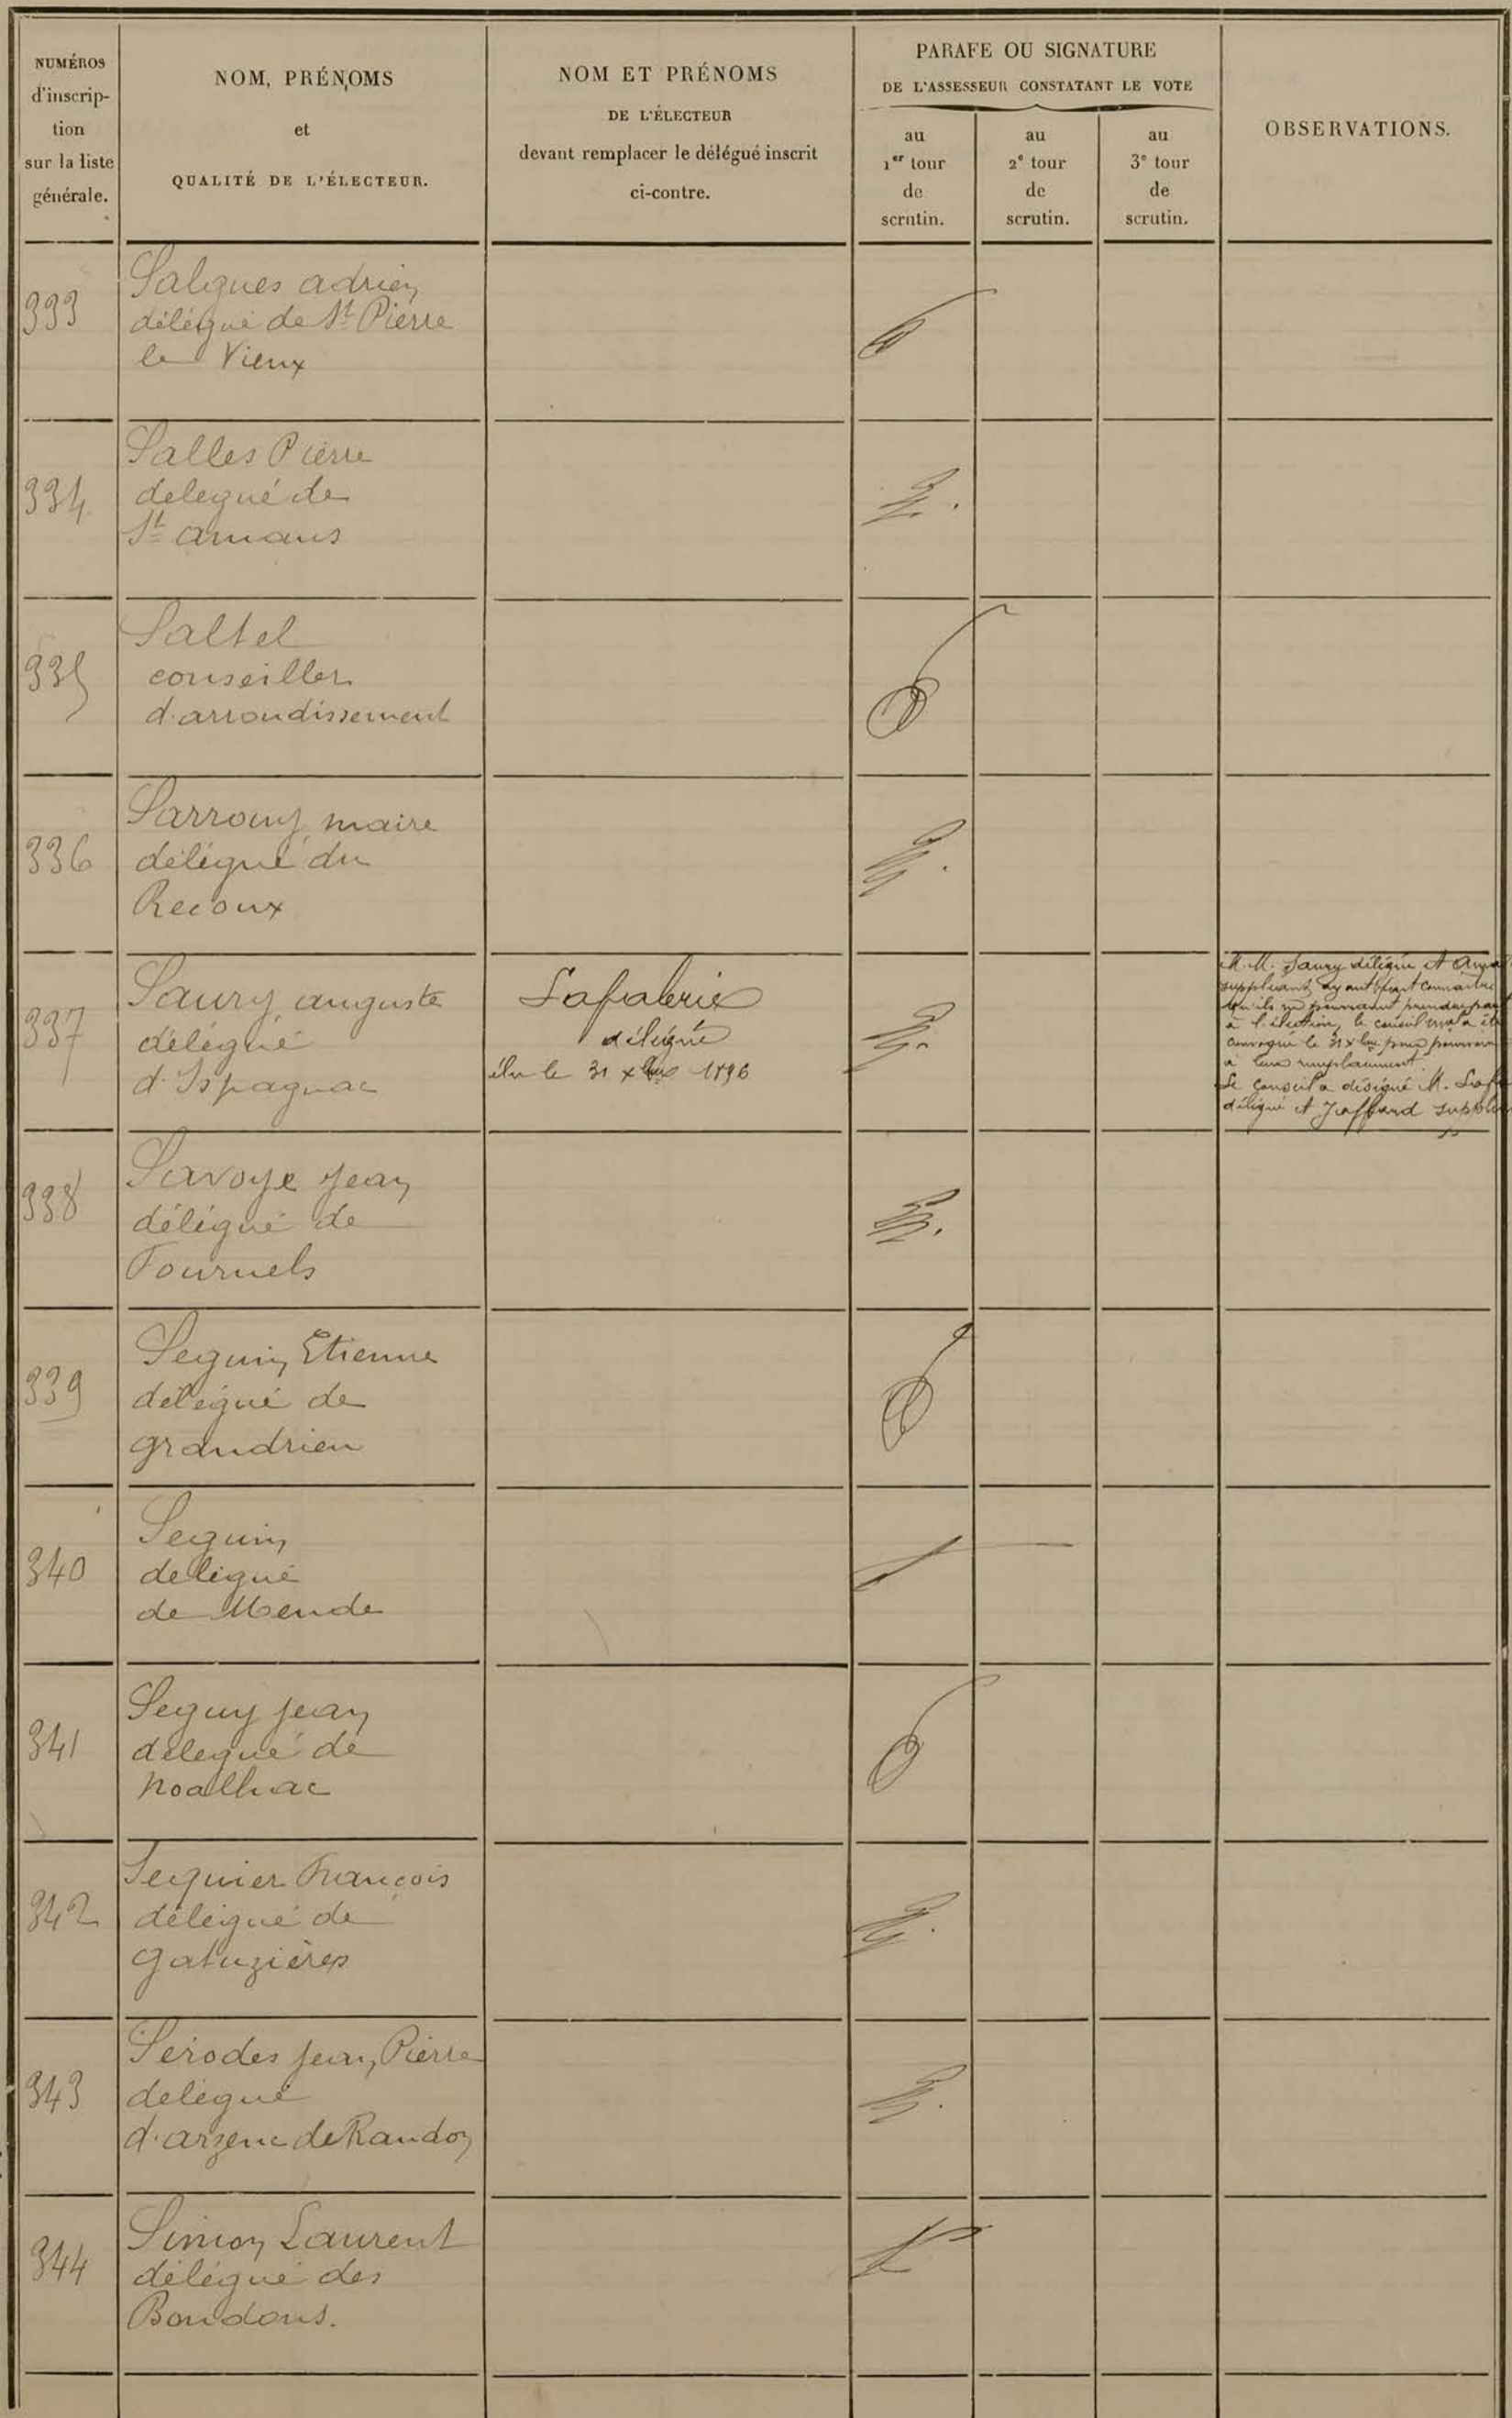 NUMÉROS
d'inscrip-
tion
sur la liste
générale.
NOM, PRÉNOMS
et
QUALITÉ DE L'ÉLECTEUR.
NOM ET PRÉNOMS
DE L'ÉLECTEUR
devant remplacer le délégué inscrit
ci-contre.
PARAFE OU SIGNATURE
DE L'ASSESSEUR CONSTATANT LE VOTE
au
1er tour
de
scrutin.
au
2e tour
de
scrutin.
au
3e tour
de
scrutin.
OBSERVATIONS.
333
Salgues adrien
délégué de St Pierre
le Vieux
334
Salles Pierre
delegué de
St amans
335
Saltel
conseiller
d'arrondissement
336
Sarrouy maire
délégué du
Recoux
337
Saury auguste
délégué
d'Ispagnac
Lafabrie
délégué
élu le 31 xbre 1896
M.M. Saury délégué et
suppléant, ayant fait connaître
qu'ils ne pourraient prendre
à l'élection, le conseil mal a
convoqué le 31 xbre pour pourvoir
à leur remplacement.
Le conseil a désigné M.
délégué et Jaffard
338
Savoye Jean
délégué de
Fournels
339
Seguin Etienne
délégué de
grandrieu
340
Seguin
delégué
de Mende
341
Seguy Jean
délegué de
Noalhac
342
Seguier François
délégué de
gatuzières
343
Serodes Jean Pierre
delegué
d'arzenc de Randon
344
Simon Laurent
délégué des
Bondons.